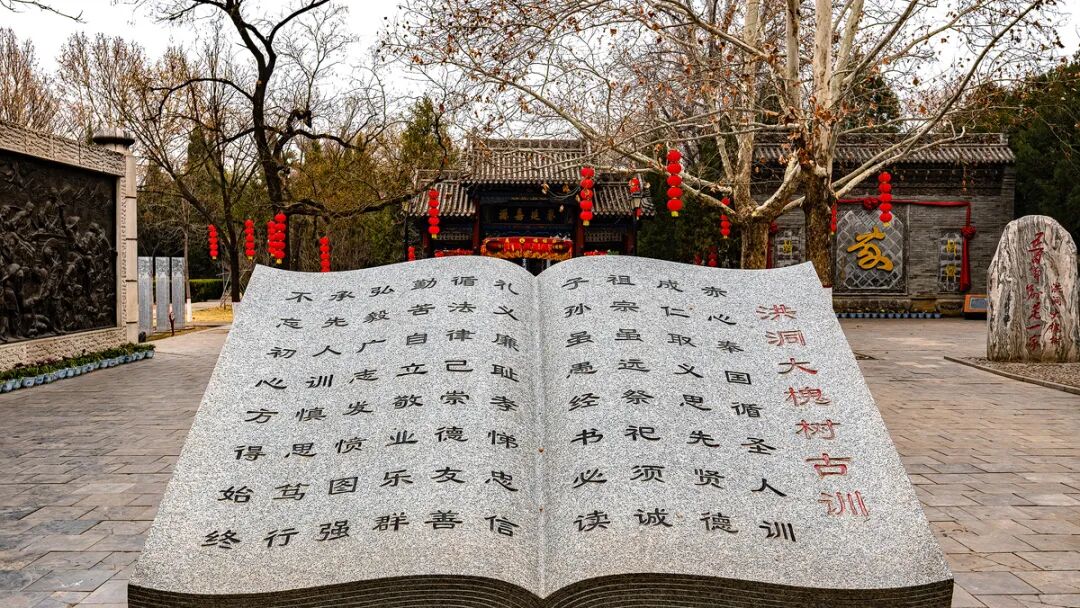 洪洞大槐树古训
赤心奉国循圣人训
成仁取义思先贤德
祖宗虽远祭祀须诚
子孙虽愚经书必读
礼义廉耻孝悌忠信
循法律己崇德友善
勤苦自立敬业乐群
弘毅广志发愤图强
承先人训慎思笃行
不忘初心方得始终